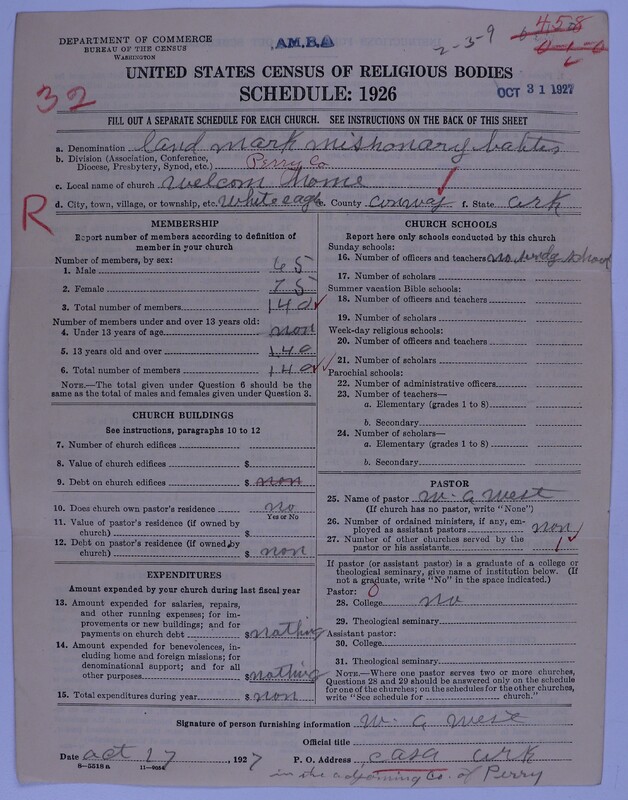 DEPARTMENT OF COMMERCE
BUREAU OF THE CENSUS
WASHINGTON
A.M.B.A
2-3-9
458
32
UNITED STATES CENSUS OF RELIGIOUS BODIES
SCHEDULE: 1926
OCT 31 1927
FILL OUT A SEPARATE SCHEDULE FOR EACH CHURCH. SEE INSTRUCTIONS ON THE BACK OF THIS SHEET
a. Denomination land mark missionary babtes
b. Division (Association, Conference,
Diocese, Presbytery, Synod, etc.) Perry Co
c. Local name of church welcom home
d. City, town, village, or township, etc. White eagle e. County conway f. State ark
R
MEMBERSHIP
Report number of members according to definition of
member in your church
Number of members, by sex:
1. Male 65
2. Female 75
3. Total number of members 140
Number of members under and over 13 years old:
4. Under 13 years of age non
5. 13 years old and over 140
6. Total number of members 140
NOTE.—The total given under Question 6 should be
same as the total of males and females given under Question 3.
CHURCH BUILDINGS
See instructions, paragraphs 10 to 12
7. Number of church edifices
8. Value of church edifices $
9. Debt on church edifices $ non
10. Does church own pastor's residence no
Yes or No
11. Value of pastor's residence (if owned by
church) $
12. Debt on pastor's residence (if owned by
church) $ non
EXPENDITURES
Amount expended by your church during last fiscal year
13. Amount expended for salaries, repairs,
and other running expenses; for im-
provements or new buildings; and for
payments on church debt $ nathing
14. Amount expended for benevolences, in-
cluding home and foreign missions; for
denominational support; and for all
other purposes $ nathing
15. Total expenditures during year $ non
CHURCH SCHOOLS
Report here only schools conducted by this church
Sunday schools:
16. Number of officers and teachers no sundy school
17. Number of scholars
Summer vacation Bible schools:
18. Number of officers and teachers
19. Number of scholars
Week-day religious schools:
20. Number of officers and teachers
21. Number of scholars
Parochial schools:
22. Number of administrative officers
23. Number of teachers—
a. Elementary (grades 1 to 8)
b. Secondary
24. Number of scholars—
a. Elementary (grades 1 to 8)
b. Secondary
PASTOR
25. Name of pastor W. a west
(If church has no pastor, write "None")
26. Number of ordained ministers, if any, em-
ployed as assistant pastors non
27. Number of other churches served by the
pastor or his assistants 1
If pastor (or assistant pastor) is a graduate of a college or
theological seminary, give name of institution below. (If
not a graduate, write "No" in the space indicated.)
Pastor: 0
28. College no
29. Theological seminary
Assistant pastor:
30. College
31. Theological seminary
NOTE.—Where one pastor serves two or more churches,
Questions 28 and 29 should be answered only on the schedule
for one of the churches; on the schedules for the other churches,
write "See schedule for church."
Signature of person furnishing information W. a west
Official title
Date oct 27, 1927 P. O. Address casa ark
8—5518 a 11—9054
in the adjoining Co. of Perry